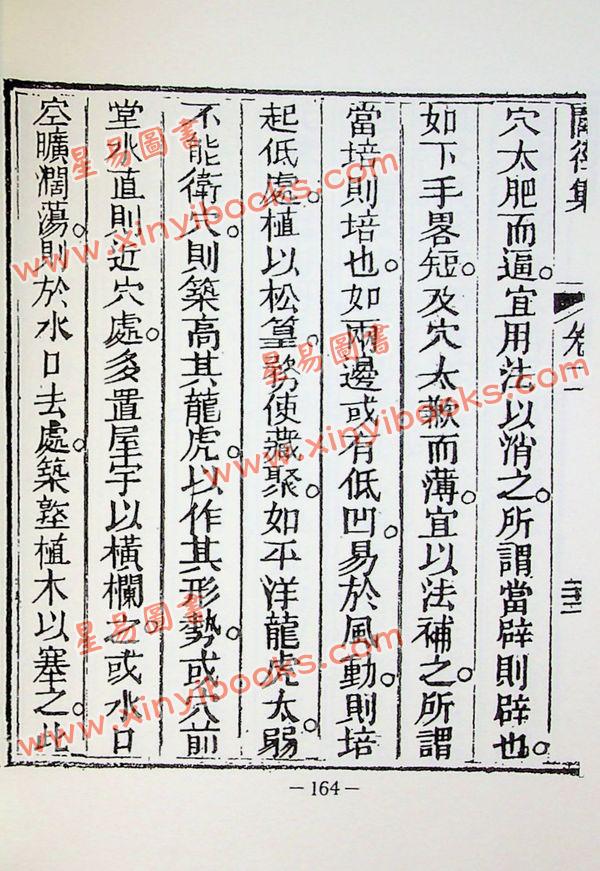 穴太肥而逼。宜用法以消之。所謂當辟則辟也。
如下手畧短。及穴太歉而薄。宜以法補之。所謂
當培則培也。如兩邊或有低凹。易於風動。則培
起低處。植以松篁。務使藏聚。如平洋龍虎太弱。
不能衛穴。則築高其龍虎。以作其形勢。或穴前
堂水直則近穴處。多置屋宇以橫欄之。或水口
空曠濶蕩。則於水口去處。築墪植木以塞之。此
卷一
— 164 —
星易圖書
www.xinyibooks.com
星易圖書
www.xinyibooks.com
星易圖書
www.xinyibooks.com